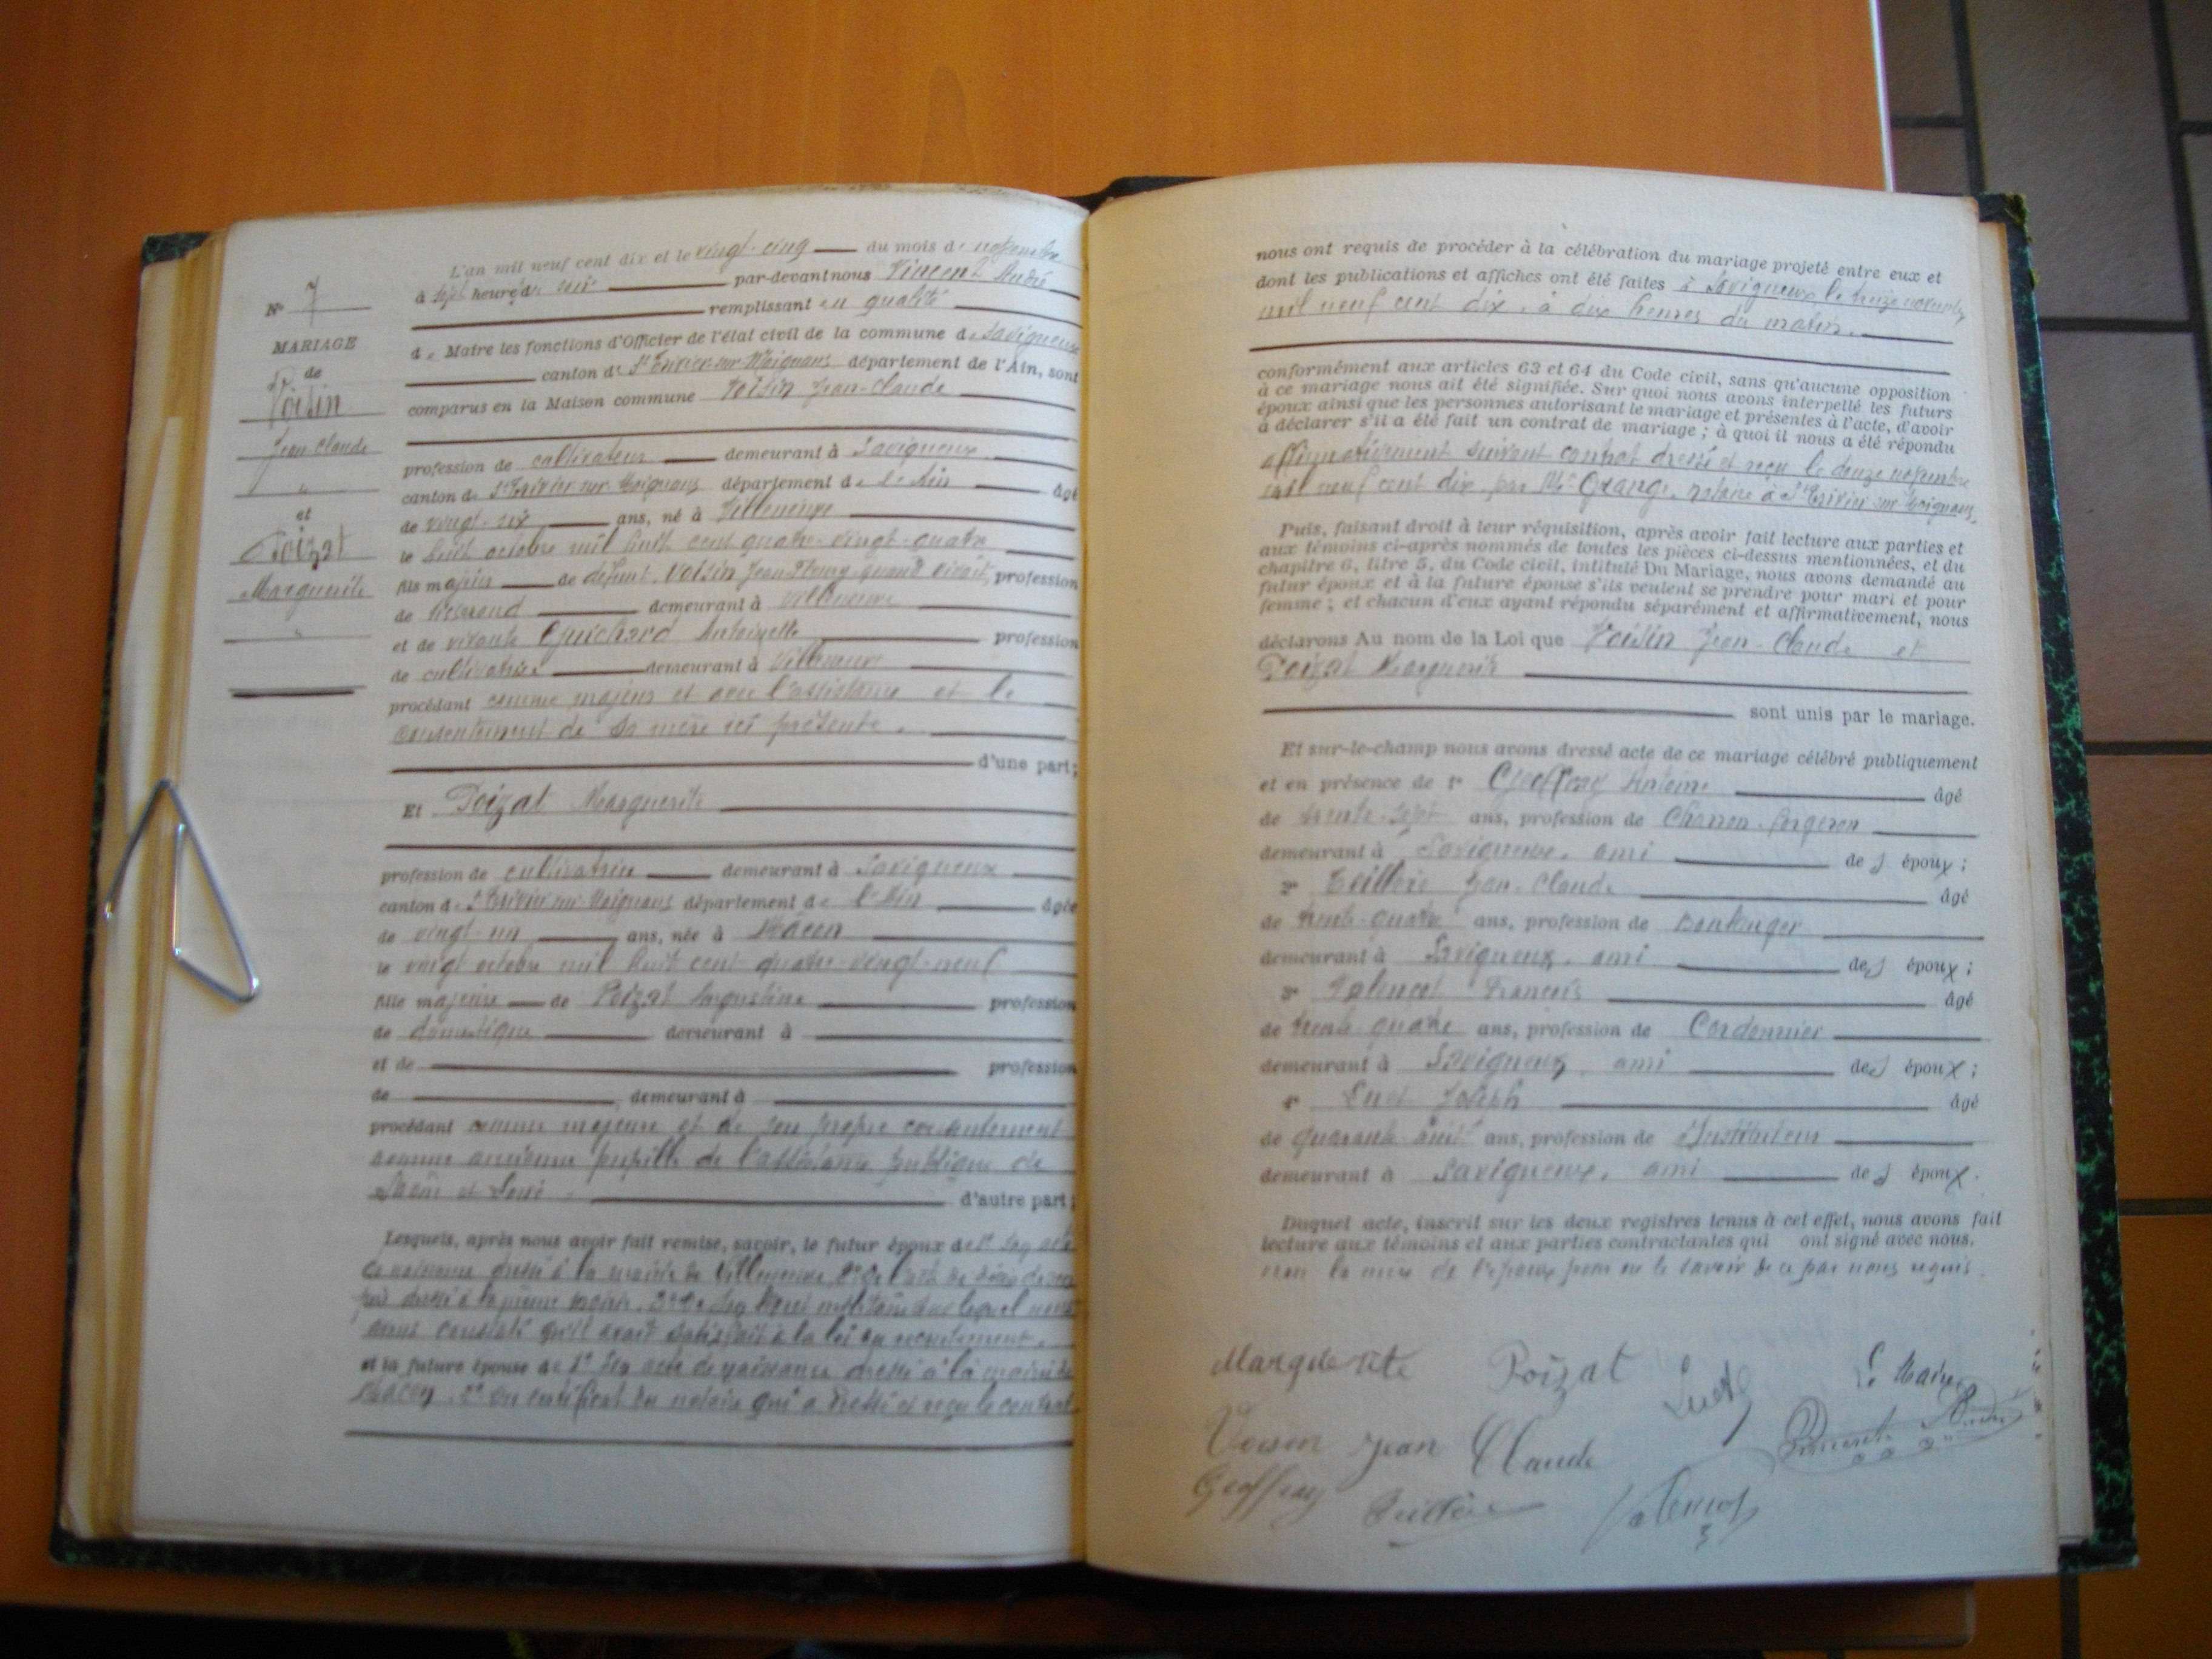 N° 7
MARIAGE
de
Voisin
Jean-Claude
"
et
Poizat
Marguerite
"
L'an mil neuf cent dix et le vingt-cinq du mois de novembre
à sept heures du soir par-devant nous Vincent André
remplissant en qualité
de Maire les fonctions d'Officier de l'état civil de la commune de Savigneux
canton de St Trivier-sur-Moignans département de l'Ain, sont
comparus en la Maison commune Voisin Jean-Claude
profession de cultivateur demeurant à Savigneux
canton de St Trivier-sur-Moignans département de l'Ain âgé
de vingt-six ans, né à Villeneuve
le huit octobre mil huit cent quatre-vingt-quatre
fils majeur de défunt Voisin Jean quand vivait, profession
de demeurant à Villeneuve
et de vivante Guichard Antoinette profession
de cultivatrice demeurant à Villeneuve
procédant comme majeur et avec l'assistance et le
consentement de sa mère ici présente.
d'une part;
Et Poizat Marguerite
profession de cultivatrice demeurant à Savigneux
canton de St Trivier-sur-Moignans département de l'Ain âgée
de vingt-un ans, née à Mâcon
le vingt octobre mil huit cent quatre-vingt-neuf
fille majeure de Poizat Augustine profession
de domestique demeurant à
et de profession
de demeurant à
procédant comme majeure et de son propre consentement
comme ancienne pupille de l'assistance publique de
Saône et Loire. d'autre part;
Lesquels, après nous avoir fait remise, savoir, le futur époux de 1° son acte
de naissance dressé à la mairie de Villeneuve 2° de l'acte de décès de son
père dressé à la même mairie. 3° de son livret militaire sur lequel nous
avons constaté qu'il avait satisfait à la loi du recrutement.
et la future épouse de 1° son acte de naissance dressé à la mairie de
Mâcon. 2° du certificat du notaire qui a dressé et reçu le contrat
nous ont requis de procéder à la célébration du mariage projeté entre eux et
dont les publications et affiches ont été faites à Savigneux le treize novembre
mil neuf cent dix, à dix heures du matin.
conformément aux articles 63 et 64 du Code civil, sans qu'aucune opposition
à ce mariage nous ait été signifiée. Sur quoi nous avons interpellé les futurs
époux ainsi que les personnes autorisant le mariage et présentes à l'acte, d'avoir
à déclarer s'il a été fait un contrat de mariage; à quoi il nous a été répondu
affirmativement suivant contrat dressé et reçu le douze novembre
mil neuf cent dix par Me Grange, notaire à St Trivier sur Moignans.
Puis, faisant droit à leur réquisition, après avoir fait lecture aux parties et
aux témoins ci-après nommés de toutes les pièces ci-dessus mentionnées, et du
chapitre 6, titre 5, du Code civil, intitulé Du Mariage, nous avons demandé au
futur époux et à la future épouse s'ils veulent se prendre pour mari et pour
femme; et chacun d'eux ayant répondu séparément et affirmativement, nous
déclarons Au nom de la Loi que Voisin Jean-Claude et
Poizat Marguerite
sont unis par le mariage.
Et sur-le-champ nous avons dressé acte de ce mariage célébré publiquement
et en présence de 1° Geoffray Antoine âgé
de trente-sept ans, profession de Charron-forgeron
demeurant à Savigneux, ami des époux;
2° Teillère Jean-Claude âgé
de trente-quatre ans, profession de Boulanger
demeurant à Savigneux, ami des époux;
3° Valencot François âgé
de trente quatre ans, profession de Cordonnier
demeurant à Savigneux, ami des époux;
4° Luet Joseph âgé
de quarante huit ans, profession de Instituteur
demeurant à Savigneux, ami des époux.
Duquel acte, inscrit sur les deux registres tenus à cet effet, nous avons fait
lecture aux témoins et aux parties contractantes qui ont signé avec nous,
non la mère de l'époux pour ne le savoir de ce par nous requis.
Marguerite Poizat Luet Le Maire
Voisin Jean Claude Vincent André
Geoffray Teillère Valencot